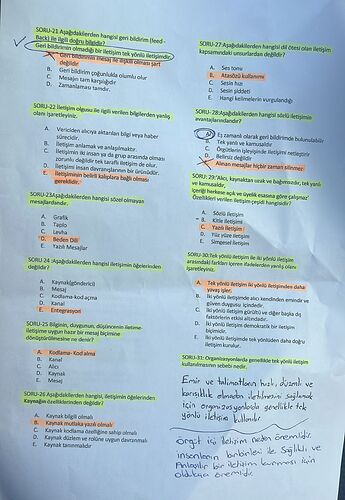 SORU-21 Aşağıdakilerden hangisi geri bildirim (feed -
Back) ile ilgili doğru bilgidir?
Geri bildirimin olmadığı bir iletişim tek yönlü iletişimdir.
A. Geri bildirimin mesaj ile ilişkili olması şart
değildir
B. Geri bildirim çoğunlukla olumlu olur
C. Mesajın tam karşılığıdır
D. Zamanlaması tamdır.
SORU-22 İletişim olgusu ile ilgili verilen bilgilerden yanlış
olanı işaretleyiniz.
A. Vericiden alıcıya aktarılan bilgi veya haber
sürecidir.
B. İletişim anlamak ve anlaşılmaktır.
C. İletişimin iki insan ya da grup arasında olması
zorunlu değildir tek taraflı iletişim de olur.
D. İletişim insan davranışlarının bir ürünüdür.
E. İletişimin belirli kalıplara bağlı olması
gereklidir.
SORU-23Aşağıdakilerden hangisi sözel olmayan
mesajlardandır.
A. Grafik
B. Tablo
C. Levha
D. Beden Dili
E. Yazılı Mesajlar
SORU 24 Aşağıdakilerden hangisi iletişimin öğelerinden
değildir?
A. Kaynak(gönderici)
B. Mesaj
C. Kodlama-kod açma
D. Kanal
E. Entegrasyon
SORU-25 Bilginin, duygunun, düşüncenin iletime-
iletişime uygun hazır bir mesaj biçimine
dönüştürülmesine ne denir?
A. Kodlama- Kod alma
B. Kanal
C. Alıcı
D. Kaynak
E. Mesaj
SORU-26 Aşağıdakilerden hangisi, iletişimin öğelerinden
Kaynağın özelliklerinden değildir?
A. Kaynak bilgili olmalı
B. Kaynak mutlaka yazılı olmalı
C. Kaynak kodlama özelliğine sahip olmalı
D. Kaynak düzlem ve rolüne uygun davranmalı
E. Kaynak tanınmalıdır
SORU-27:Aşağıdakilerden hangisi dil ötesi olan iletişim
kapsamındaki unsurlardan değildir?
A. Ses tonu
B. Atasözü kullanımı
C. Sesin hızı
D. Sesin şiddeti
E. Hangi kelimelerin vurgulandığı
SORU-28:Aşağıdakilerden hangisi sözlü iletişimin
avantajlarındandır?
A. Eş zamanlı olarak geri bildirimde bulunulabilir
B. Tek yanlı ve kamusaldır
C. Örgütlerin işleyişinde iletişimi netleştirir
D. Belirsiz değildir
Alınan mesajlar hiçbir zaman silinmez
SORU: 29:"Alıcı, kaynaktan uzak ve bağımsızdır, tek yanlı
ve kamusaldır.
İçeriği herkese açık ve üyelik esasına göre çalışmaz"
Özellikleri verilen iletişim çeşidi hangisidir?
A. Sözlü iletişim
B. Kitle iletişimi
C. Yazılı iletişim
D. Yüz yüze iletişim
E. Simgesel iletişim
SORU-30:Tek yönlü iletişim ile iki yönlü iletişim
arasındaki farkları içeren ifadelerden yanlış olanı
işaretleyiniz.
A. Tek yönlü iletişim iki yönlü iletişimden daha
yavaş işler.
B. İki yönlü iletişimde alıcı kendinden emindir ve
güven duygusu içindedir.
C. İki yönlü iletişim gürültü ve diğer başka dış
faktörlerin etkisi altındadır.
D. İki yönlü iletişim demokratik bir iletişim
biçimidir.
E. İki yönlü iletişim tek yönlüden daha doğru
iletişim kurulur.
SORU-31: Organizasyonlarda genellikle tek yönlü iletişim
kullanılmasının sebebi nedir.
Emir ve talimatların hızlı, düzenli ve
karışıklık olmadan iletilmesini sağlamak
için organizasyonlarda genellikle tek
yönlü iletişim kullanılır.
örgüt içi iletişim neden önemlidir.
insanların birbirleri ile sağlıklı ve
Anlaşılır bir iletişim kurması için
oldukça önemlidir.